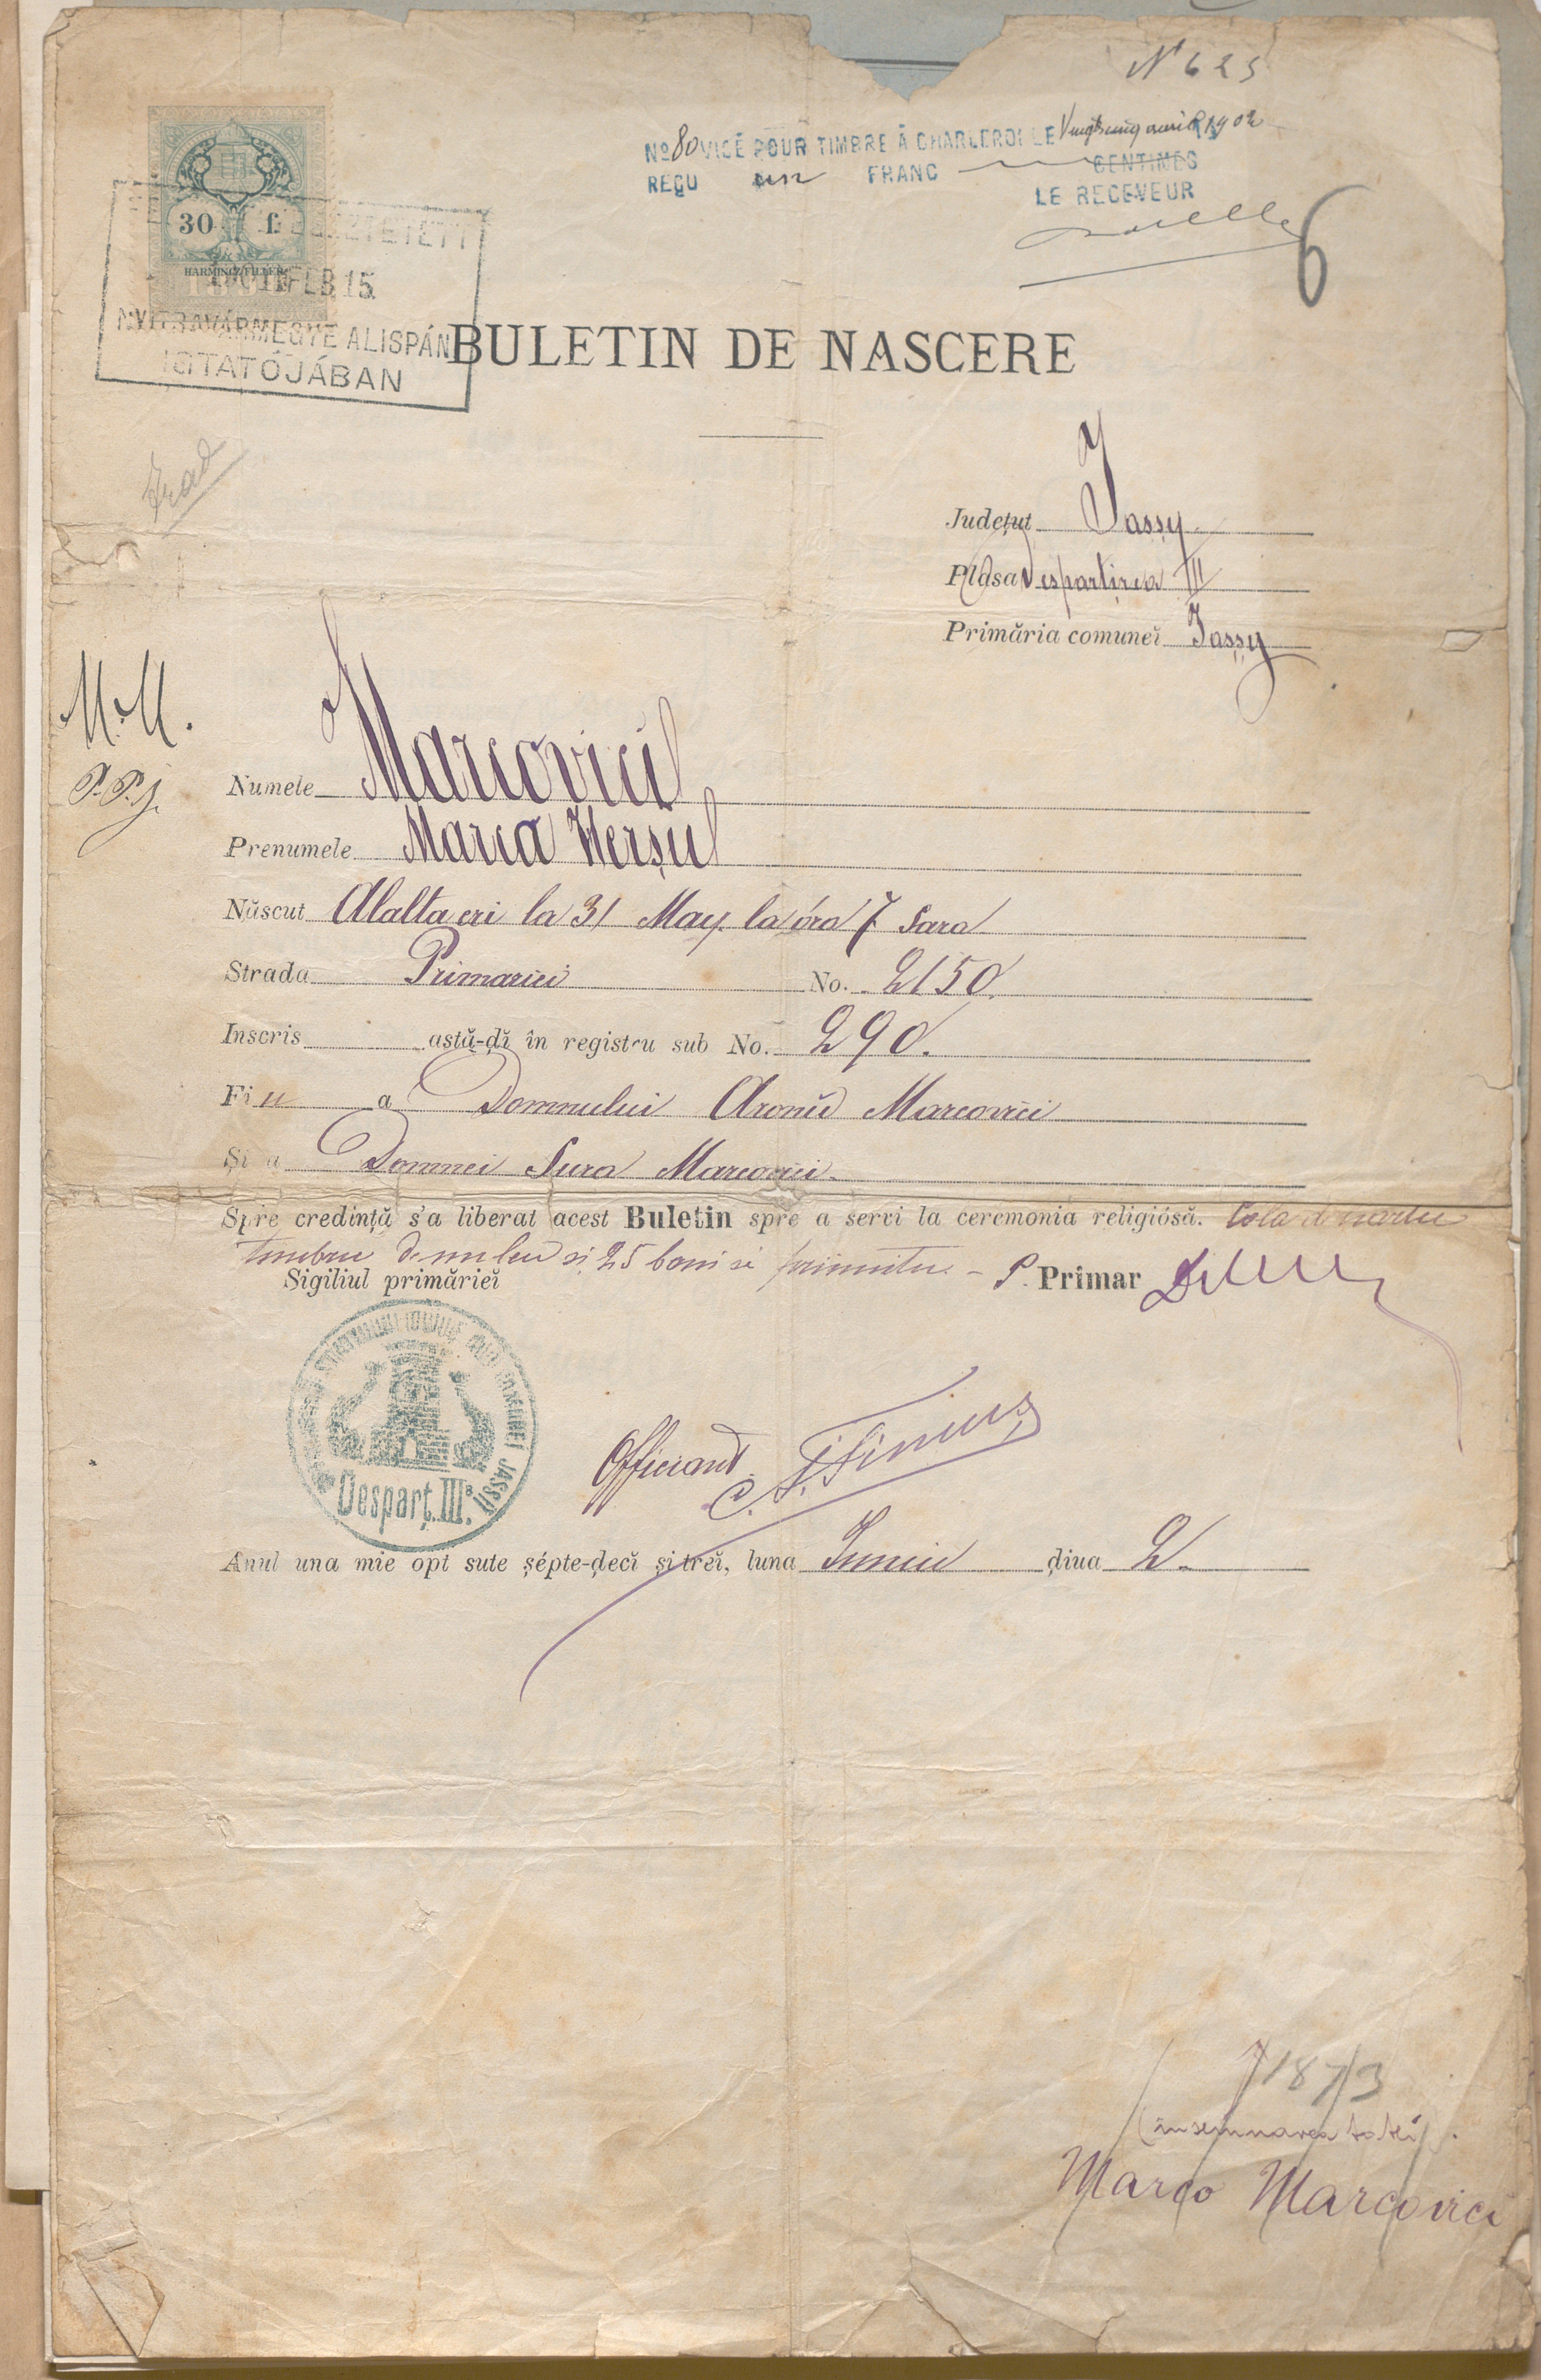 N 625
No 80 VISÉ POUR TIMBRE À CHARLEROI LE Vingt cinq avril 1902
REÇU un FRANC CENTIMES
LE RECEVEUR
6
30 f.
HARMINCZ FILLÉR
FEB 15
NYITRAVÁRMEGYE ALISPÁN
IGTATÓJÁBAN
BULETIN DE NASCERE
Județul Jassy.
Plasa Despartirea III
Primăria comuneĭ Jassy
M. M.
P. P. j.
Numele Marcovici
Prenumele Marca Herșcu
Născut Alalta eri la 31 May. la óra 7 Sara
Strada Primariei No. 2150.
Inscris astă-ḑĭ în registru sub No. 290.
Fiu a Domnului Aronŭ Marcovici
Și a Domnei Sura Marcovici.
Spre credință s'a liberat acest Buletin spre a servi la ceremonia religiósă.
timbru de un leu si 25 bani
Sigiliul primărieĭ P. Primar
COMUNEI JASSII
Despărț. III a
Officiant
Anul una mie opt sute șépte-ḑecĭ și treĭ, luna Juniu ḑiua 2.
1873
(însemnarea tatei).
Marco Marcovici